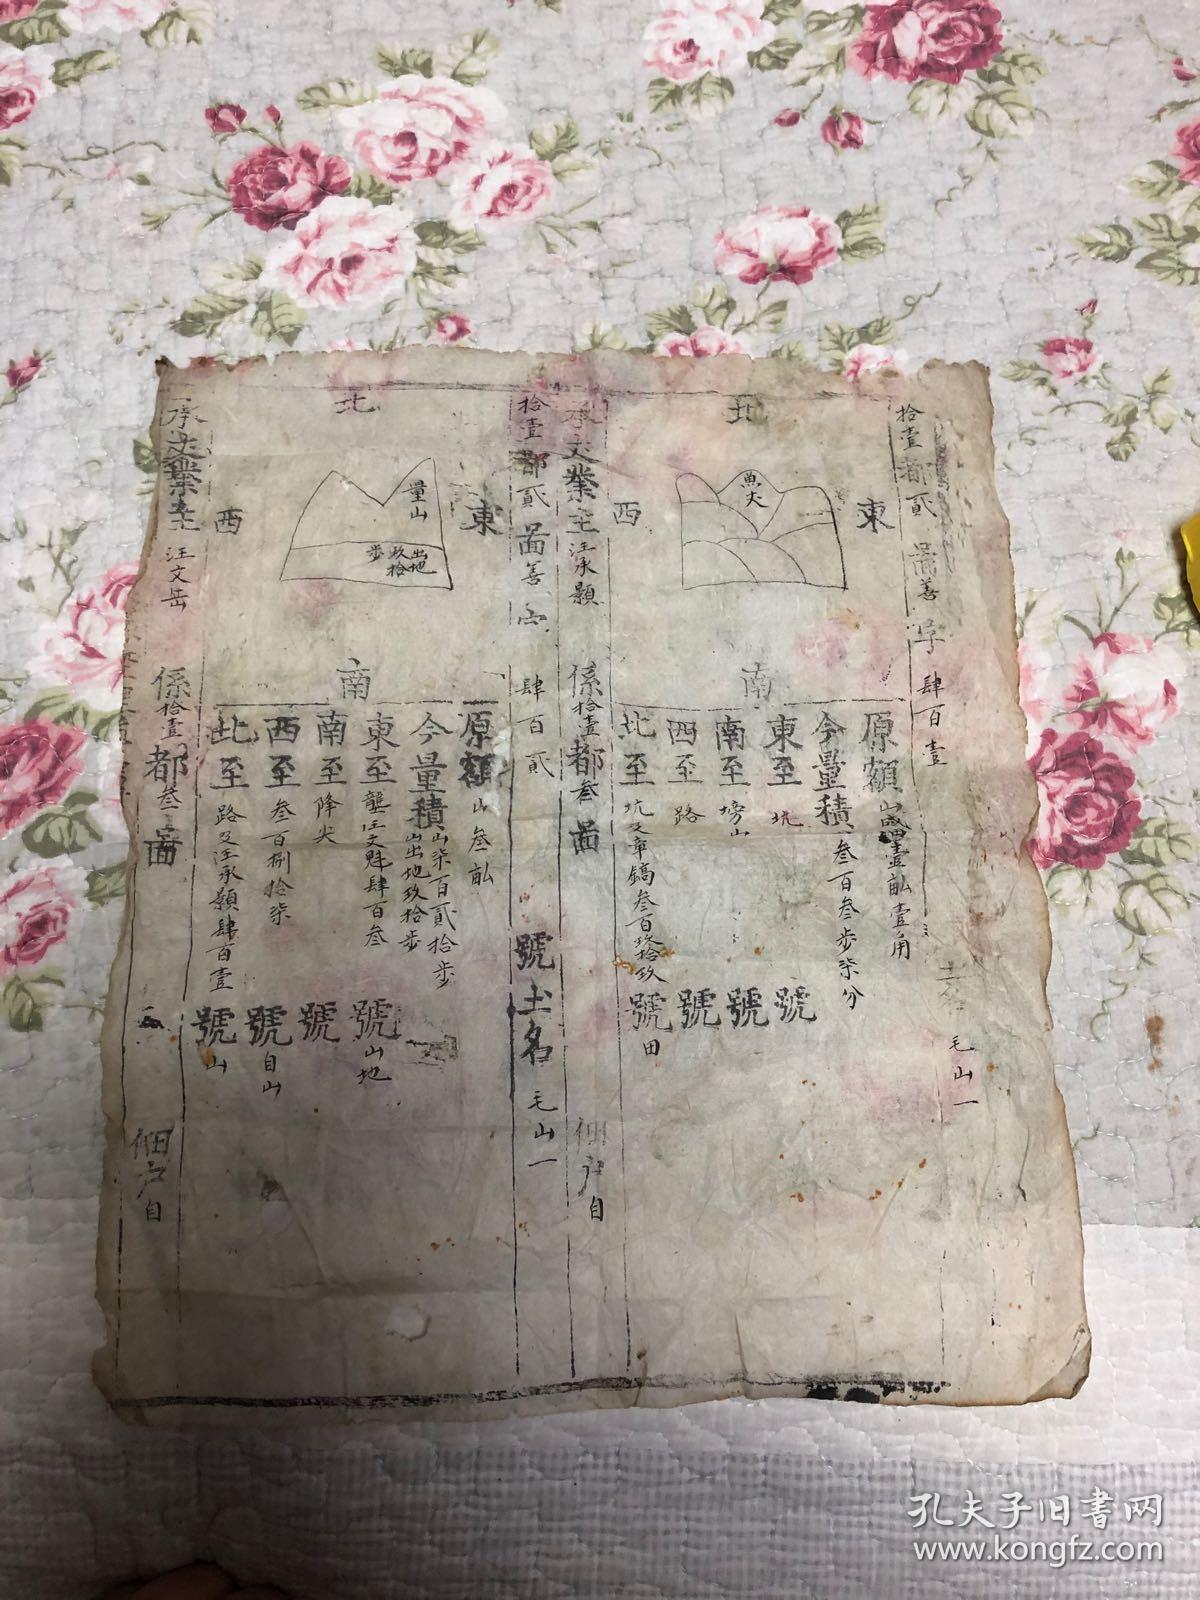 拾壹都貳啚善字肆百壹
毛山一
北
東
魚尖
西
南
原額山壹畝壹角
今量積叁百叁步柒分
東至坑號
南至塝山號
西至路號
北至坑及華鎬叁百玖拾玖號田
承丈業主汪承顥
係拾壹都叁啚
佃户自
拾壹都貳啚善字肆百貳號土名毛山一
北
東
量山
出地玖拾步
西
南
原額山叁畝
今量積山柒百貳拾步
山出地玖拾步
東至龍汪文魁肆百叁號山地
南至降尖號
西至叁百捌拾柒號自山
北至路及汪承顥肆百壹號山
承丈業主汪文岳
係拾壹都叁啚
佃户自
孔夫子旧书网
www.kongfz.com